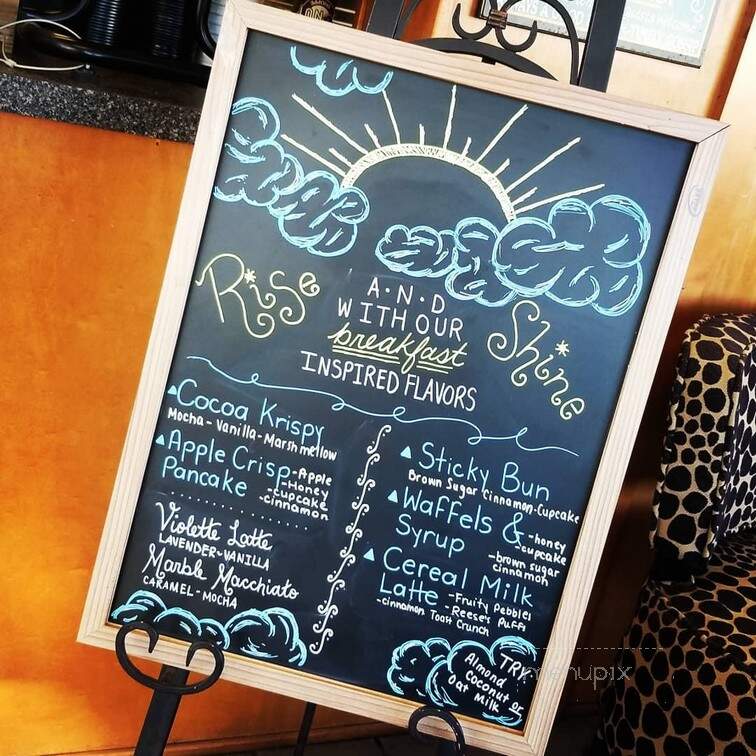 Rise
A·N·D
WITH OUR
breakfast
INSPIRED FLAVORS
Shine
Cocoa Krispy
Mocha - Vanilla - Marshmellow
Apple Crisp -Apple
Pancake -Honey
-cupcake
-cinnamon
Violette Latte
LAVENDER-VANILLA
Marble Macchiato
CARAMEL-MOCHA
Sticky Bun
Brown Sugar Cinnamon-Cupcake
Waffels & -honey
Syrup -cupcake
-brown sugar
cinnamon
Cereal Milk
Latte -Fruity Pebbles
-Reese's Puffs
-cinnamon Toast Crunch
TRY
Almond
Coconut or
Oat Milk
menupix